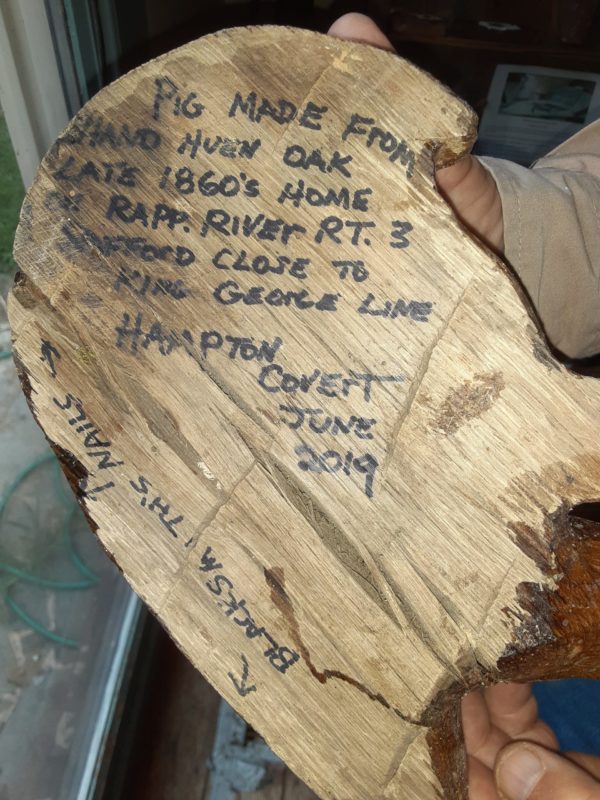 PIG MADE FROM
HAND HUEN OAK
LATE 1860'S HOME
RAPP. RIVER RT. 3
STAFFORD CLOSE TO
KING GEORGE LINE
HAMPTON
COVERT
JUNE
2019
BLACKSMITH'S NAILS